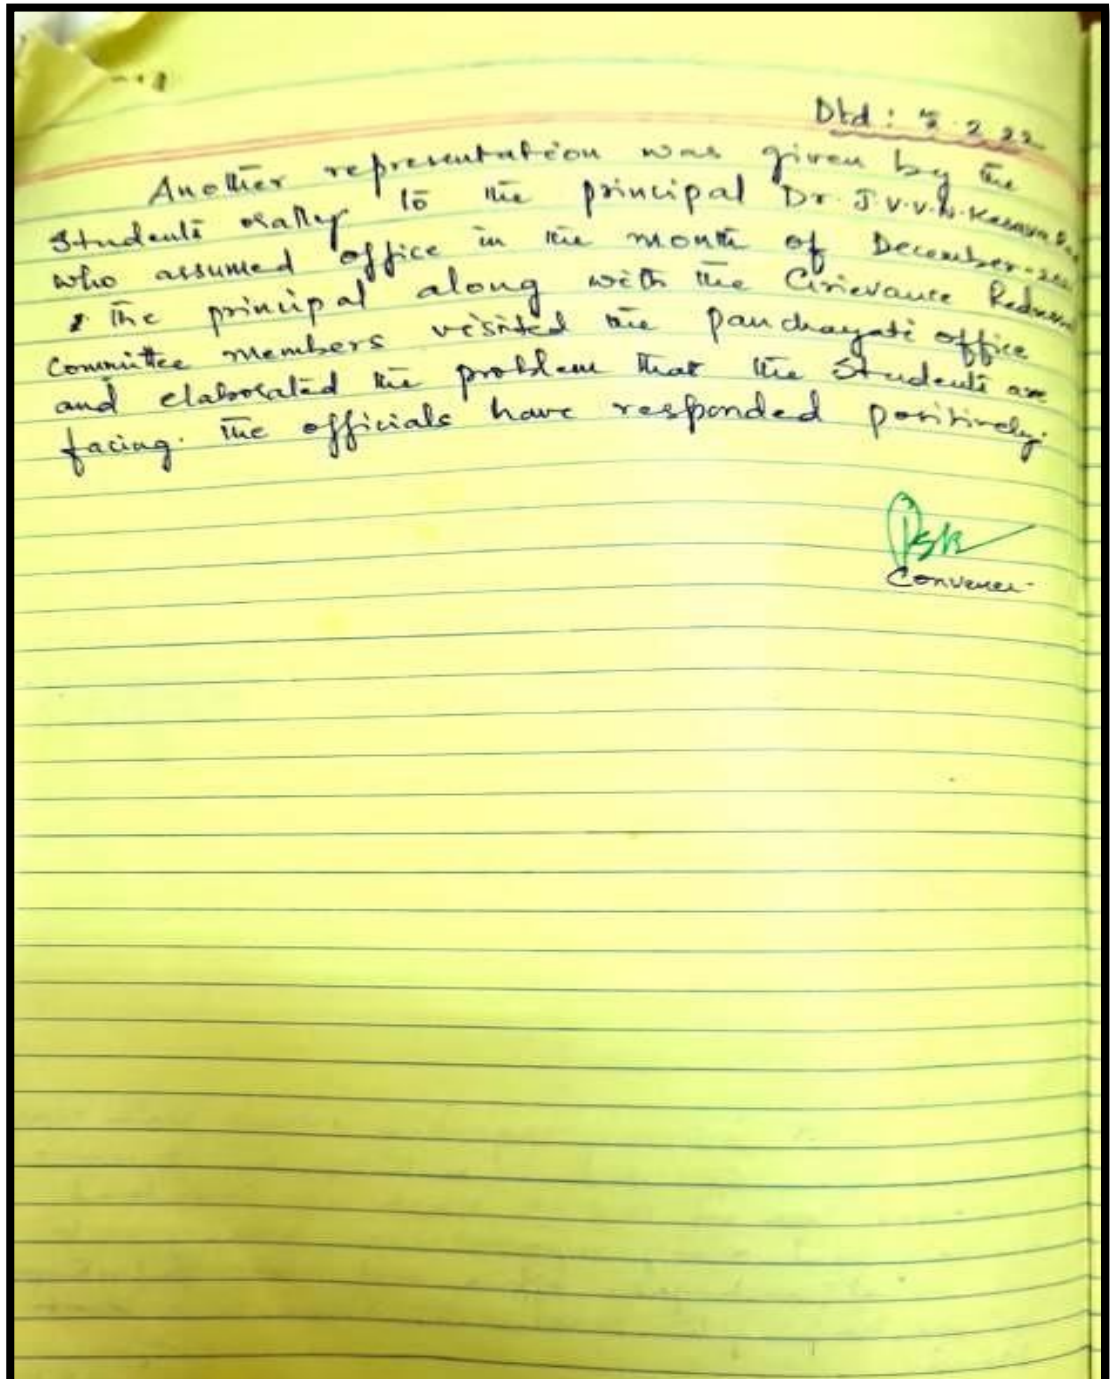 Dtd : 2.22
Another representation was given by the
Students orally to the principal Dr. J.V.V.N. Kesava
who assumed office in the month of December-
The principal along with the Grievance
Committee members visited the panchayati office
and elaborated the problem that the Students are
facing. The officials have responded positively.
Convener